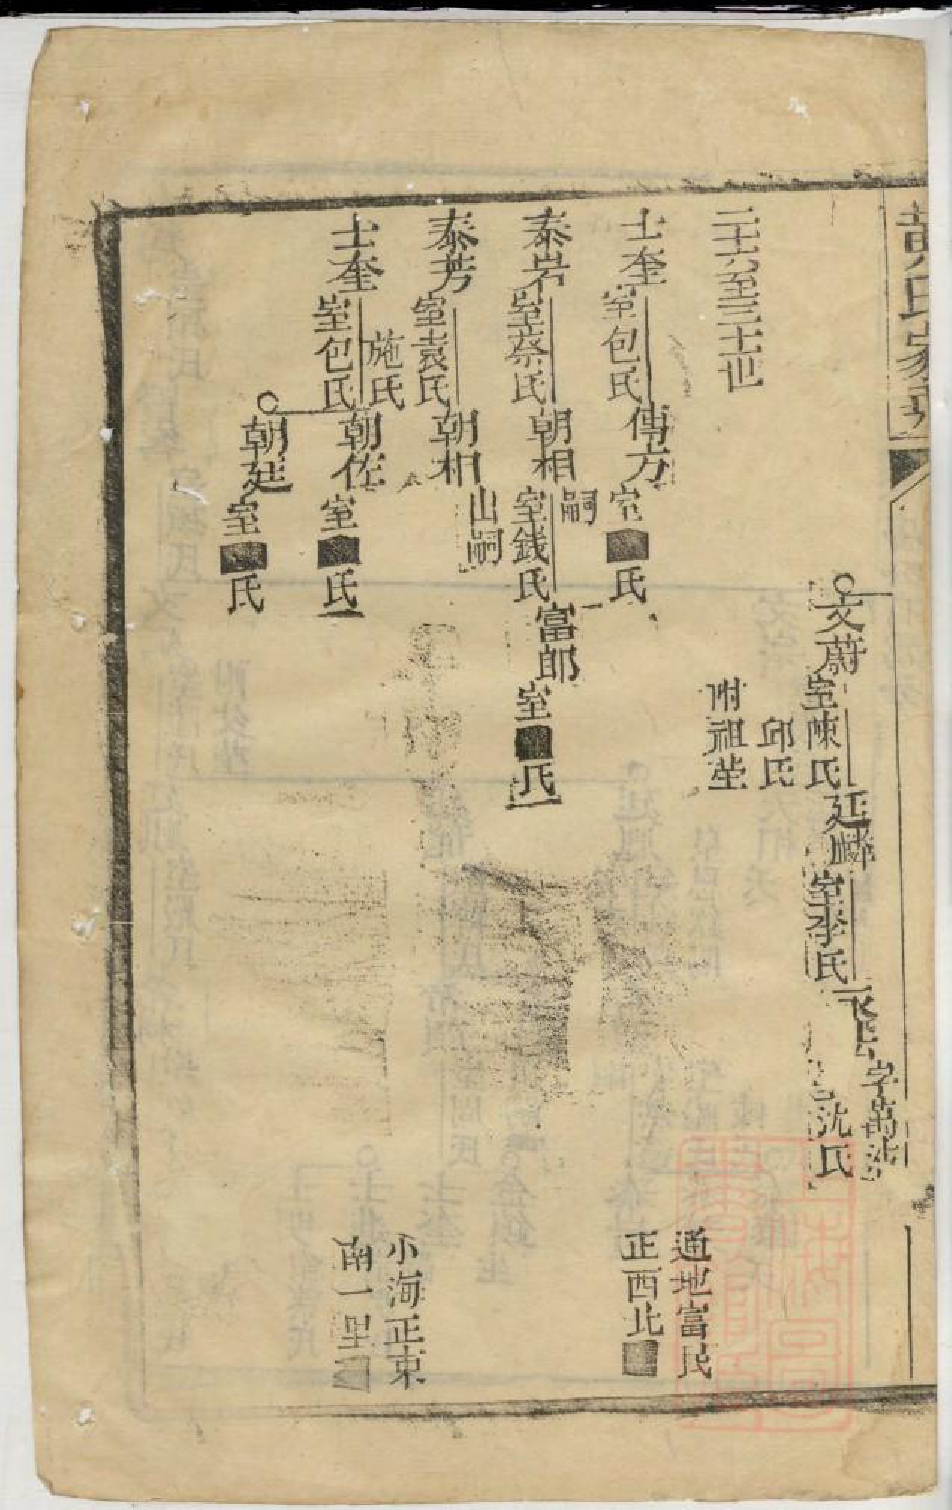 黄氏家乘
文蔚 室陳氏 廷麟 室李氏
邱氏
附祖塋
字萬
沈氏
二十六至三十世
士奎 室包氏 傳方 室■氏
通地富民
正西北■
泰岩 室蔡氏 朝相 嗣
室錢氏 富郎 室■氏
泰芳 室袁氏 朝相 出嗣
施氏
士奎 室包氏 朝佐 室■氏
小海正東
南一里■
朝廷 室■氏